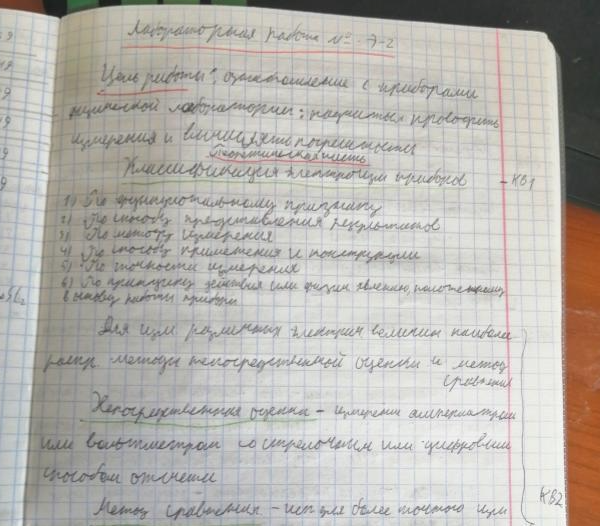 Лабораторная работа № Э-2
Цель работы: ознакомление с приборами
физической лаборатории; научиться проводить
измерения и вычислять погрешности
Теоретическая часть
Классификация электроизм приборов - КВ1
1) По функциональному признаку
2) По способу представления результатов
3) По методу измерения
4) По способу применения и конструкции
5) По точности измерения
6) По принципу действия или физич явлению, положенному
в основу работы прибора
Для изм различных электрич величин наиболее
распр. методы непосредственной оценки и метод
сравнения
Непосредственная оценка - измерении амперметром
или вольтметром со стрелочным или цифровым
способом отсчета
КВ2
Метод сравнения - исп для более точного изм